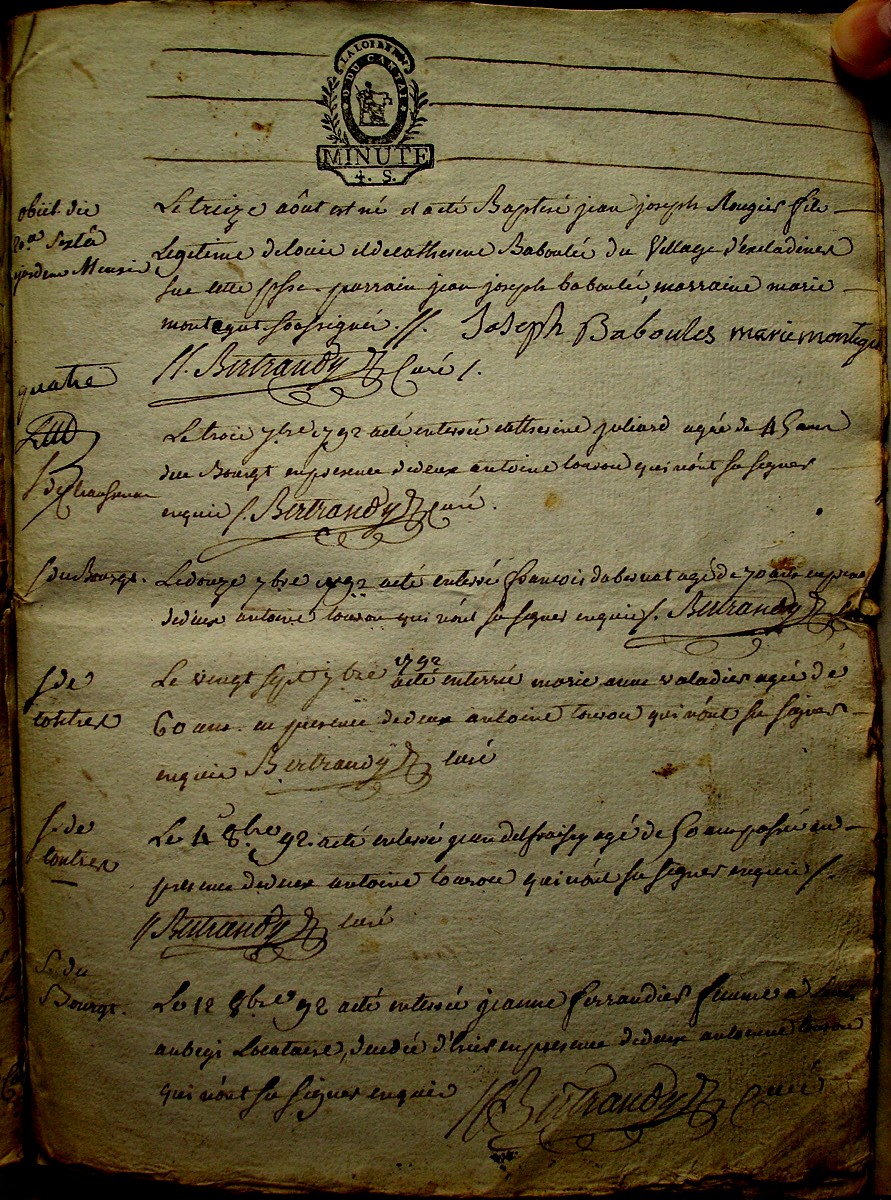 LA LOI
DU CANTAL
MINUTE
4. S.
obiit die
Le treize aôut est né et a été Baptisé jean joseph Rougier fils
Legitime de louis et de catherine Baboulés du Village d'escladines
sur cette psse. parrain jean joseph baboulés, marraine marie
montagut soussignés. //. Joseph Baboulés marie montagut
//. Bertrandy Curé /.
quatre
Le trois 7bre 1792 a été enterrée catherine juliard agée de 45 ans
du Bourgt en presence de deux antoine tourou qui n'ont su signer
enquis /. Bertrandy Curé.
S. du Bourgt. Le douze 7bre 1792 a été enterré françois dabernat agé de 70 ans en presence
de deux antoine tourou qui n'ont su signer enquis /. Bertrandy
S. de
contres
Le vingt sept 7bre 1792 a été enterrée marie anne valadier agée de
60 ans en presence de deux antoine tourou qui n'ont su signer
enquis Bertrandy curé
S. de
contres
Le 4 8bre 92. a été enterré jean delfraissy agé de 50 ans passés en
presence de deux antoine tourou qui n'ont su signer enquis /.
// Bertrandy curé
S. du
Bourgt.
Le 12 8bre 92 a été enterrée jeanne ferrandier femme a
Locataire, decedée d'hier en presence de deux antoine tourou
qui n'ont su signer enquis // Bertrandy Curé